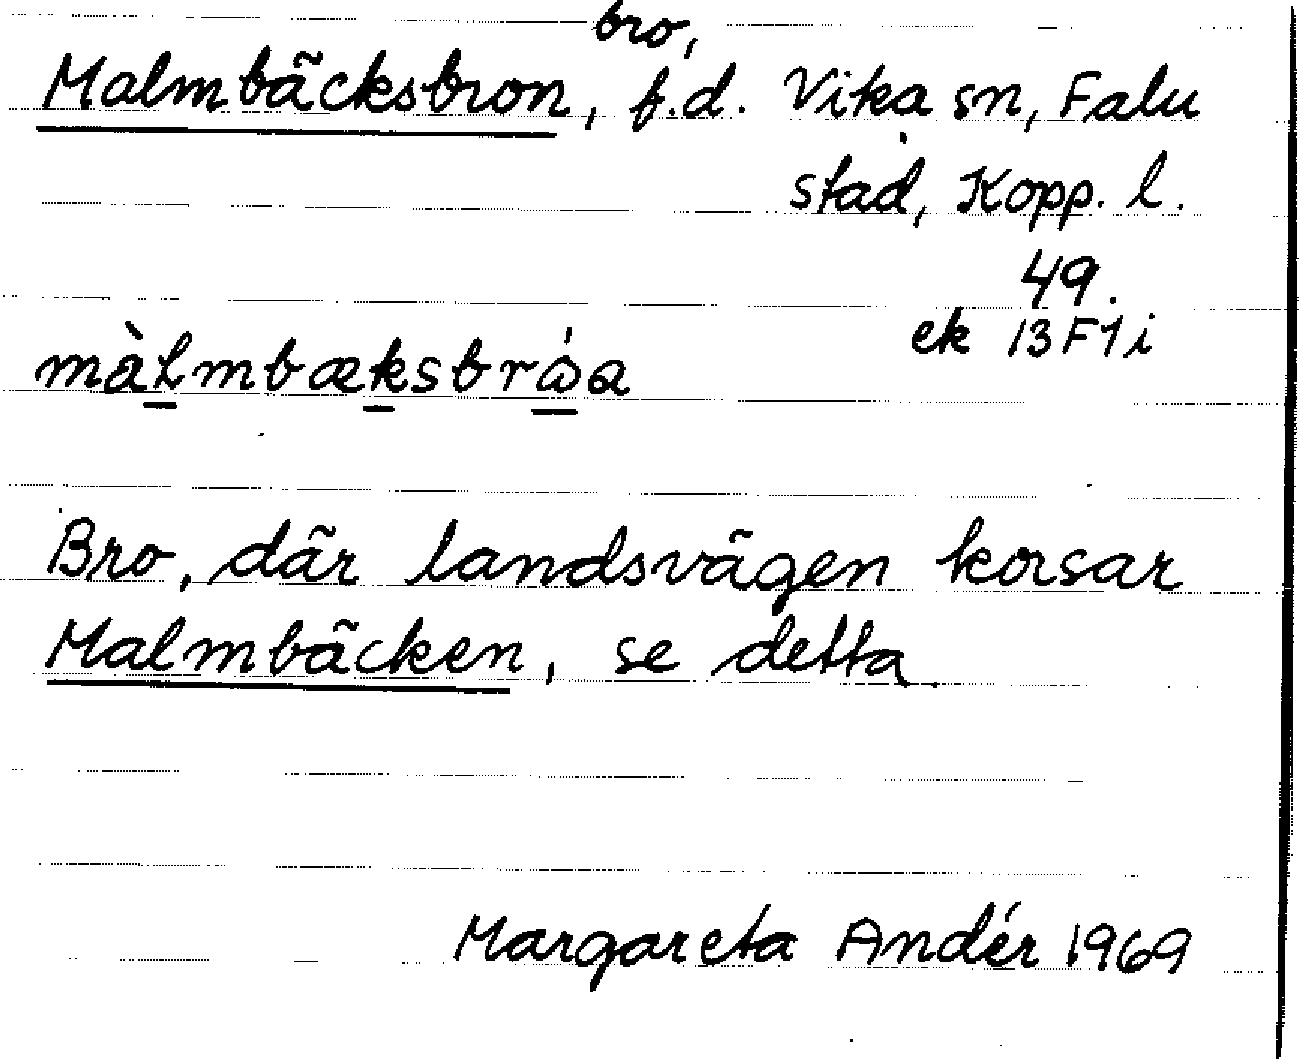 bro,
Malmbäcksbron, f.d. Vika sn, Falu
stad, Kopp. l.
49.
ek 13F1i
màlmbæksbrόa
Bro, där landsvägen korsar
Malmbäcken, se detta.
Margareta Andér 1969